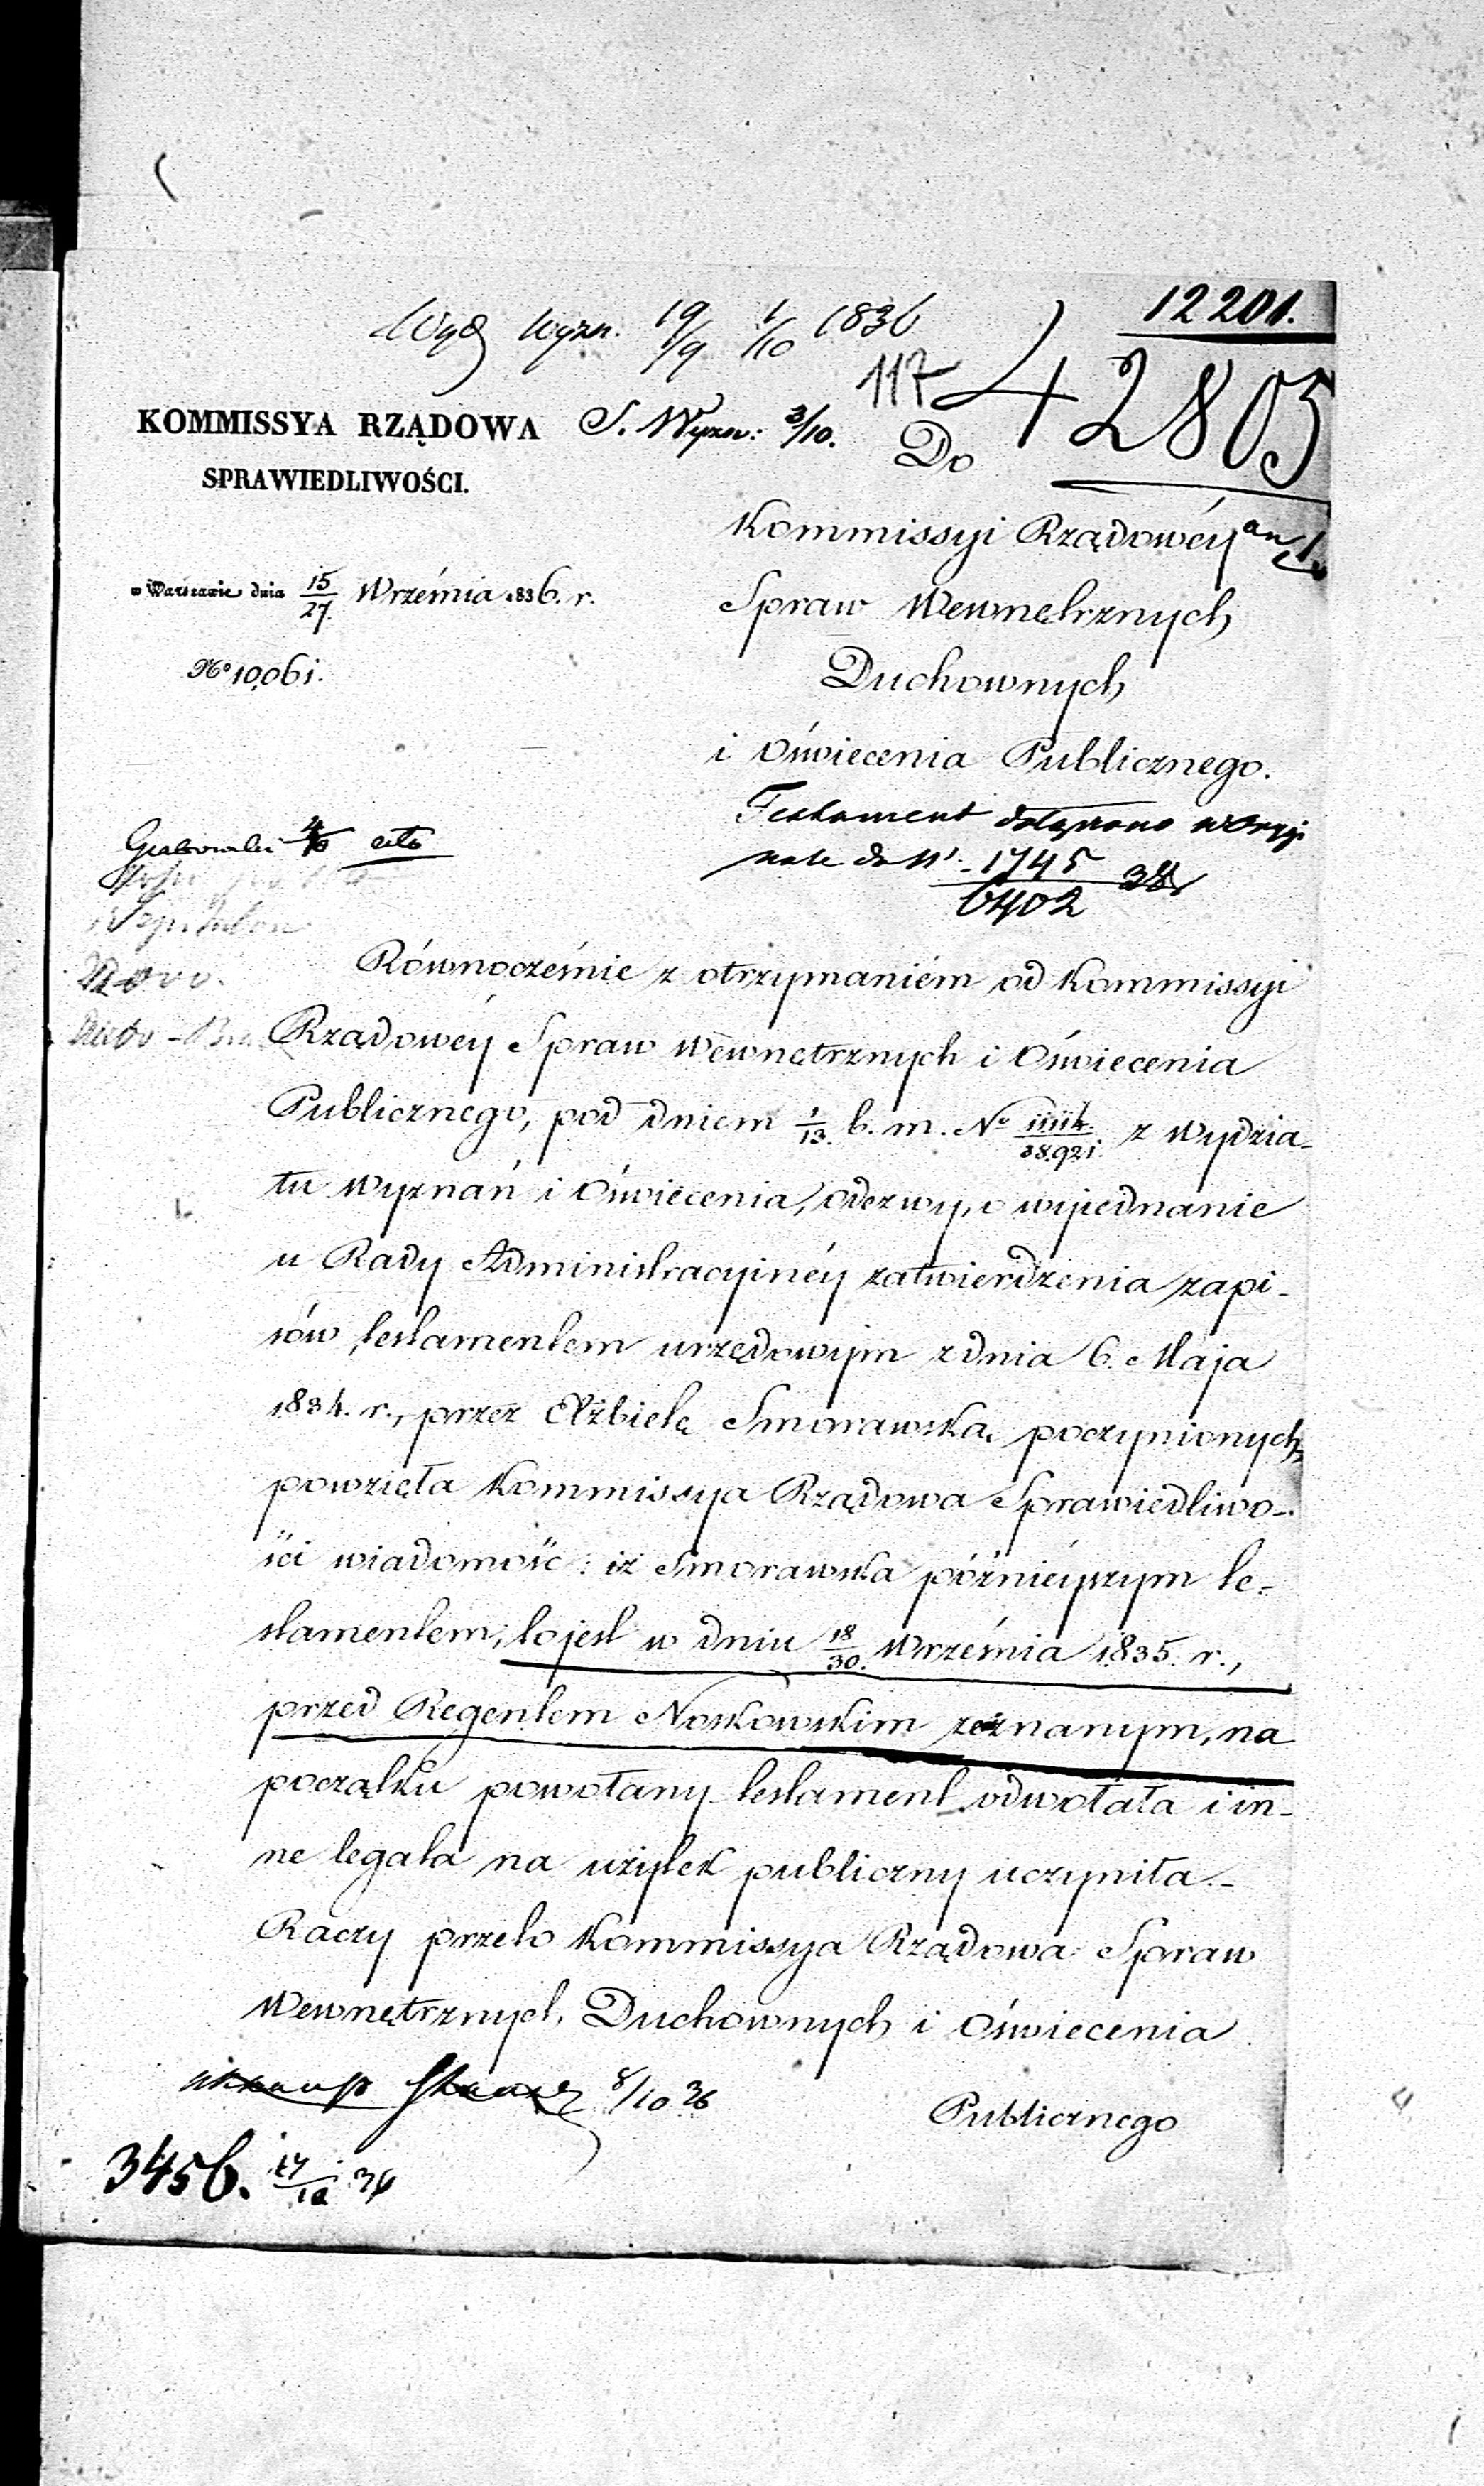 12201.
Wydz Wyzn. 19/9 1/10 1836
117
42805
KOMMISSYA RZĄDOWA
SPRAWIEDLIWOŚCI.
S. Wyzn: 3/10.
Do
Kommissyi Rządowéy
an 1
w Warszawie dnia 15/27. Września 1836. r.
Spraw Wewnętrznych
No 10,061.
Duchownych
i Oświecenia Publicznego.
Testament dołączono w Orygi
nale do Nr. 1745/6402 38
Grabowski 4/10 cito
Równocześnie z otrzymaniém od Kommissyi
Rządowéy Spraw Wewnętrznych i Oświecenia
Publicznego, pod dniem 1/13. b. m. No 11114./38.921. z Wydzia-
łu Wyznań i Oświecenia, odezwy, o wyjednanie
u Rady Administracyinéy zatwierdzenia zapi-
sów, testamentem urzędowym z dnia 6. Maja
1834. r., przez Elżbietę Smorawską poczynionych,
powzięła Kommissya Rządowa Sprawiedliwo-
ści wiadomość: iż Smorawska późnieyszym te-
stamentem, to jest w dniu 18/30. Września 1835. r.,
przed Regentem Noskowskim zeznanym, na
początku powołany testament odwołała i in-
ne legata na użytek publiczny uczyniła.-
Raczy przeto Kommissya Rządowa Spraw
Wewnętrznych, Duchownych i Oświecenia
8/10 36
Publicznego
3456. 17/10 36